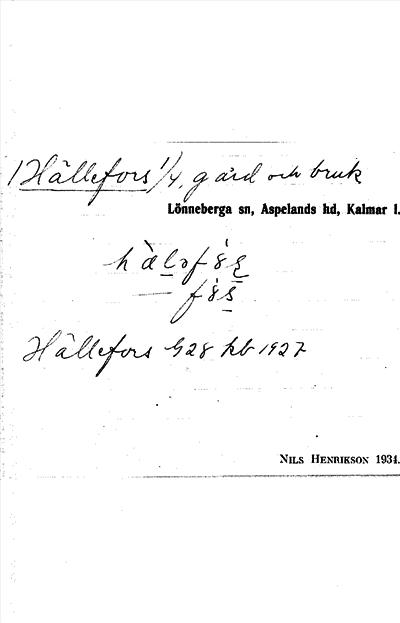 Hällefors 1/4, gård och bruk
Lönneberga sn, Aspelands hd, Kalmar l.
Hällefors G28 hb 1927
NILS HENRIKSON 1934.